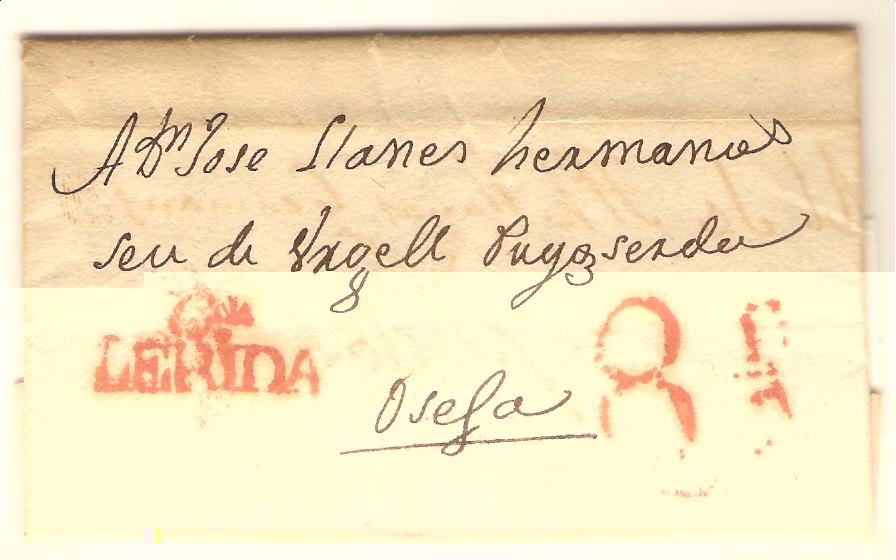 A Dn Jose Llanes hermanos
seu de Vrgell Puygserda
LERIDA
8
Oseja